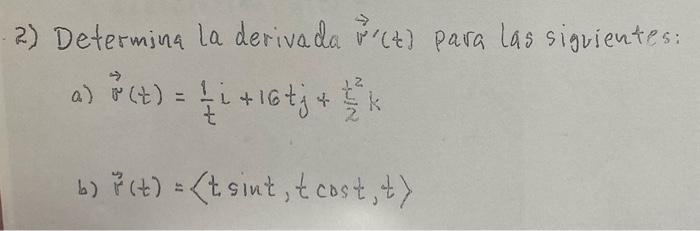 2) Determina la derivada r⃗'(t) para las siguientes:
a) r⃗(t) = 1/t i + 16tj + t²/2 k
b) r⃗(t) = ⟨t sint, t cost, t⟩